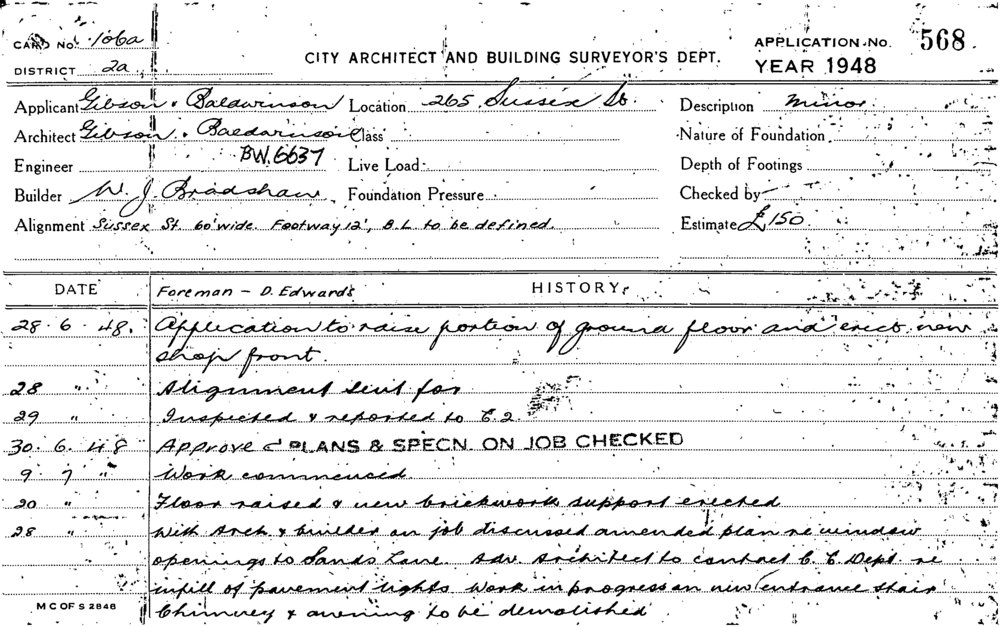 CARD No. 106a
CITY ARCHITECT AND BUILDING SURVEYOR'S DEPT.
APPLICATION No. 568
DISTRICT 2a
YEAR 1948
Applicant Gibson & Baldwinson Location 265 Sussex St. Description minor
Architect Gibson & Baldwinson Class Nature of Foundation
Engineer BW.6637 Live Load Depth of Footings
Builder W. J. Bradshaw Foundation Pressure Checked by
Alignment Sussex St 60' wide. Footway 12', B.L. to be defined. Estimate £150
DATE Foreman - D. Edwards HISTORY
28.6.48. Application to raise portion of ground floor and erect new
shop front.
28 " Alignment sent for
29 " Inspected & reported to C.2
30.6.48 Approved PLANS & SPECN. ON JOB CHECKED
9.7 " Work commenced.
20 " Floor raised & new brickwork support erected
28 " With Arch & builder on job discussed amended plan re window
openings to Sands Lane. Adv. Architect to contact C.E Dept re
infill of pavement lights Work in progress on new entrance stair
Chimney & awning to be demolished
M C OF S 2848